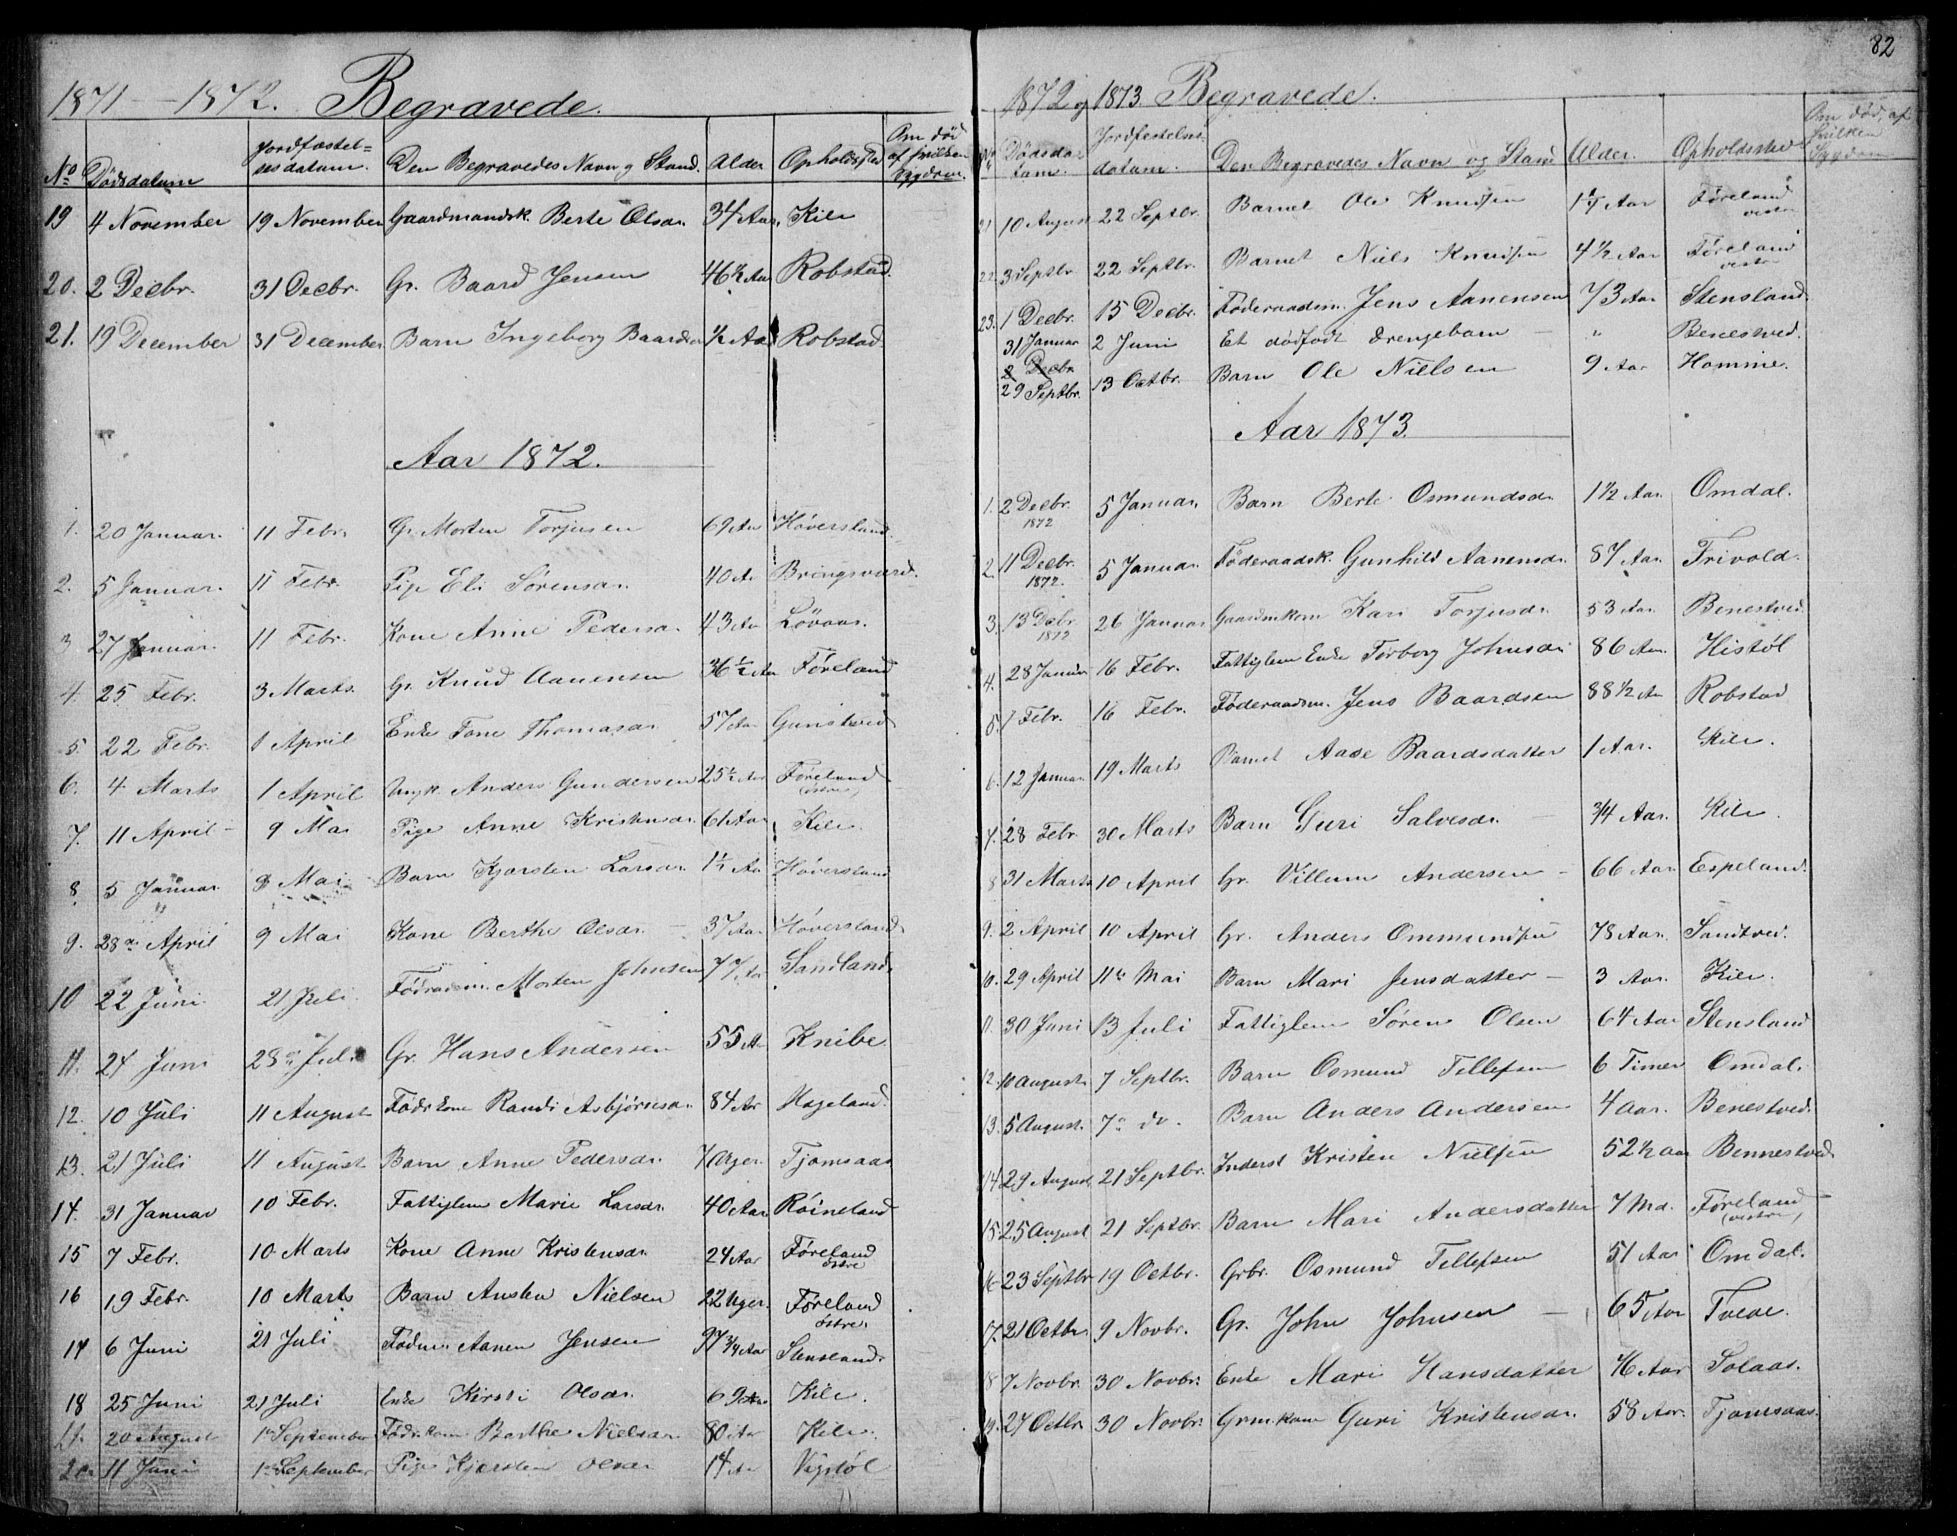 1871 — 1872. Begravede.
No Dödsdatum Jordfæstelsesdatum. Den Begravedes Navn og Stand. Alder Opholdssted Om död af hvilken Sygdom.
19 4 November 19 November Gaardmandsk. Berte Olsdr. 34 Aar, Kile
20. 2 Decbr. 31 Decbr. Gr. Baard Jensen 46 1/2 Aar Robstad.
21. 19 December 31 December Barn Ingeborg Baardsdr 1/2 Aar Robstad
Aar 1872.
1. 20 Januar. 11 Febr. Gr. Morten Torjusen 69 Aar Høversland
2. 5 Januar. 11 Febr. Pige Eli Sørensdr. 40 Ar Bringsværd.
3 27 Januar. 11 Febr. Kone Anne Pedersdr. 43 Aar Løvaas.
4. 25 Febr. 3 Marts. Gr. Knud Aanensen 36 1/2 Aar Føreland
5. 22 Febr. 1 April Enke Tone Thomasdr 57 Aar Gunstved
6. 4 Marts 1 April Ungk. Anders Gundersen 25 1/2 Aar Føreland (østre)
7. 11 April 9 Mai Pige Anne Kristensdr. 61 Aar Kile.
8 5 Januar 9 Mai Barn Kjersten Larsdr. 1 1/2 Aar Høversland
9. 28de April 9 Mai Kone Berthe Olsdr. 37 Aar. Høversland
10 22 Juni 21 Juli Födraadm. Morten Johnsen 77 Aar Sandland.
11. 24 Juni 28de Juli Gr. Hans Andersen 55 Ar Knibe
12. 10 Juli 11 August Födrkone Randi Asbjørnsdr. 84 Ar Hageland.
13. 21 Juli 11 August Barn Anne Pedersdr. 7 Uger. Tjomsaas
14. 31 Januar 10 Febr. Fattiglem Marie Larsdr. 40 Aar. Røineland
15 7 Febr. 10 Marts Kone Anne Kristensdr. 24 Aar Føreland østre
16 19 Febr. 10 Marts Barn Austen Nielsen 22 Uger. Føreland østre.
17 6 Juni 21 Juli Födm. Aanen Jensen 97 3/4 Aar Stensland.
18 25 Juni 21 Juli Enke Kirsti Olsdr. 69 Aar Kile.
20 August 1ste September Födrkone Berthe Nielsdr. 80 Ar Kile.
20. 11 Juni 1ste September Pige Kjersten Olsdr 14 Ar Vigstøl
82
1872 og 1873 Begravede.
Dødsdatum. Jordfestelsesdatum. Den Begravedes Navn og Stand Alder. Opholdssted Om død, af hvilken Sygdom
21 10 August 22 Septbr. Barnet Ole Knudsen Aar Føreland vestre
22. 3 Septbr. 22 Septbr. Barnet Niels Knudsen 4 1/2 Aar Føreland vestre
23. 1 Decbr. 15 Decbr. Föderaadsm. Jens Aanensen 73 Aar. Stensland.
31 Januar 2 Juni Et dødfødt Drengebarn — " Benestved.
2 Decbr.
29 Septbr. 13 Octbr. Barn Ole Nielsen 9 Aar Homme.
Aar 1873.
1. 2 Decbr. 1872 5 Januar. Barn Berte Osmundsdr. 1 1/2 Aar. Omdal.
2. 11 Decbr. 1872. 5 Januar. Föderaadsk. Gunhild Aanensdr. 87 Aar. Trivold.
3. 13 Decbr. 1872 26 Januar Gaardmkone Kari Torjusdr. 53 Aar. Benestved
4. 28 Januar 16 Febr. Fattiglem Enke Torborg Johnsdr 86 Aar. Histøl
5. 1 Febr. 16 Febr. Föderaadsm. Jens Baardsen 88 1/2 Ar Robstad
6. 12 Januar 19 Marts Barnet Aase Baardsdatter 1 Aar. Kile.
7. 28 Febr 30 Marts Barn Guri Salvesdr. — 3/4 Aar. Kile.
8 31 Marts 10 April Gr. Villum Andersen — 66 Aar. Espeland.
9. 2 April 10 April Gr. Anders Ommundsen 78 Aar. Sandved.
10. 29 April 11te Mai Barn Mari Jensdatter — 3 Aar. Kile.
11. 30 Juni 13 Juli Fattiglem Søren Olsen 64 Aar Stensland
12. 10 August 7 Septbr. Barn Osmund Tellefsen 6 Timer Omdal.
13. 5 August. 7de do. Barn Anders Andersen 4 Aar. Benestved.
14 29 August 21 Septbr. Inderst Kristen Nielsen 52 1/2 Aar Bennestved
15 25 August 21 Septbr. Barn Mari Andersdatter 7 Md. Føreland (vestre)
16 23 Septbr 19 Octbr. Grbr. Osmund Tellefsen 51 Aar Omdal.
17. 21 Octbr. 9 Novbr. Gr. John Johnsen — 65 Aar Tvede.
18 7 Novbr. 30 Novbr. Enke Mari Hansdatter 76 Aar Solaas.
19. 27 Octbr 30 Novbr. Grmkone Guri Kristensdr. 58 Aar. Tjomsaas.